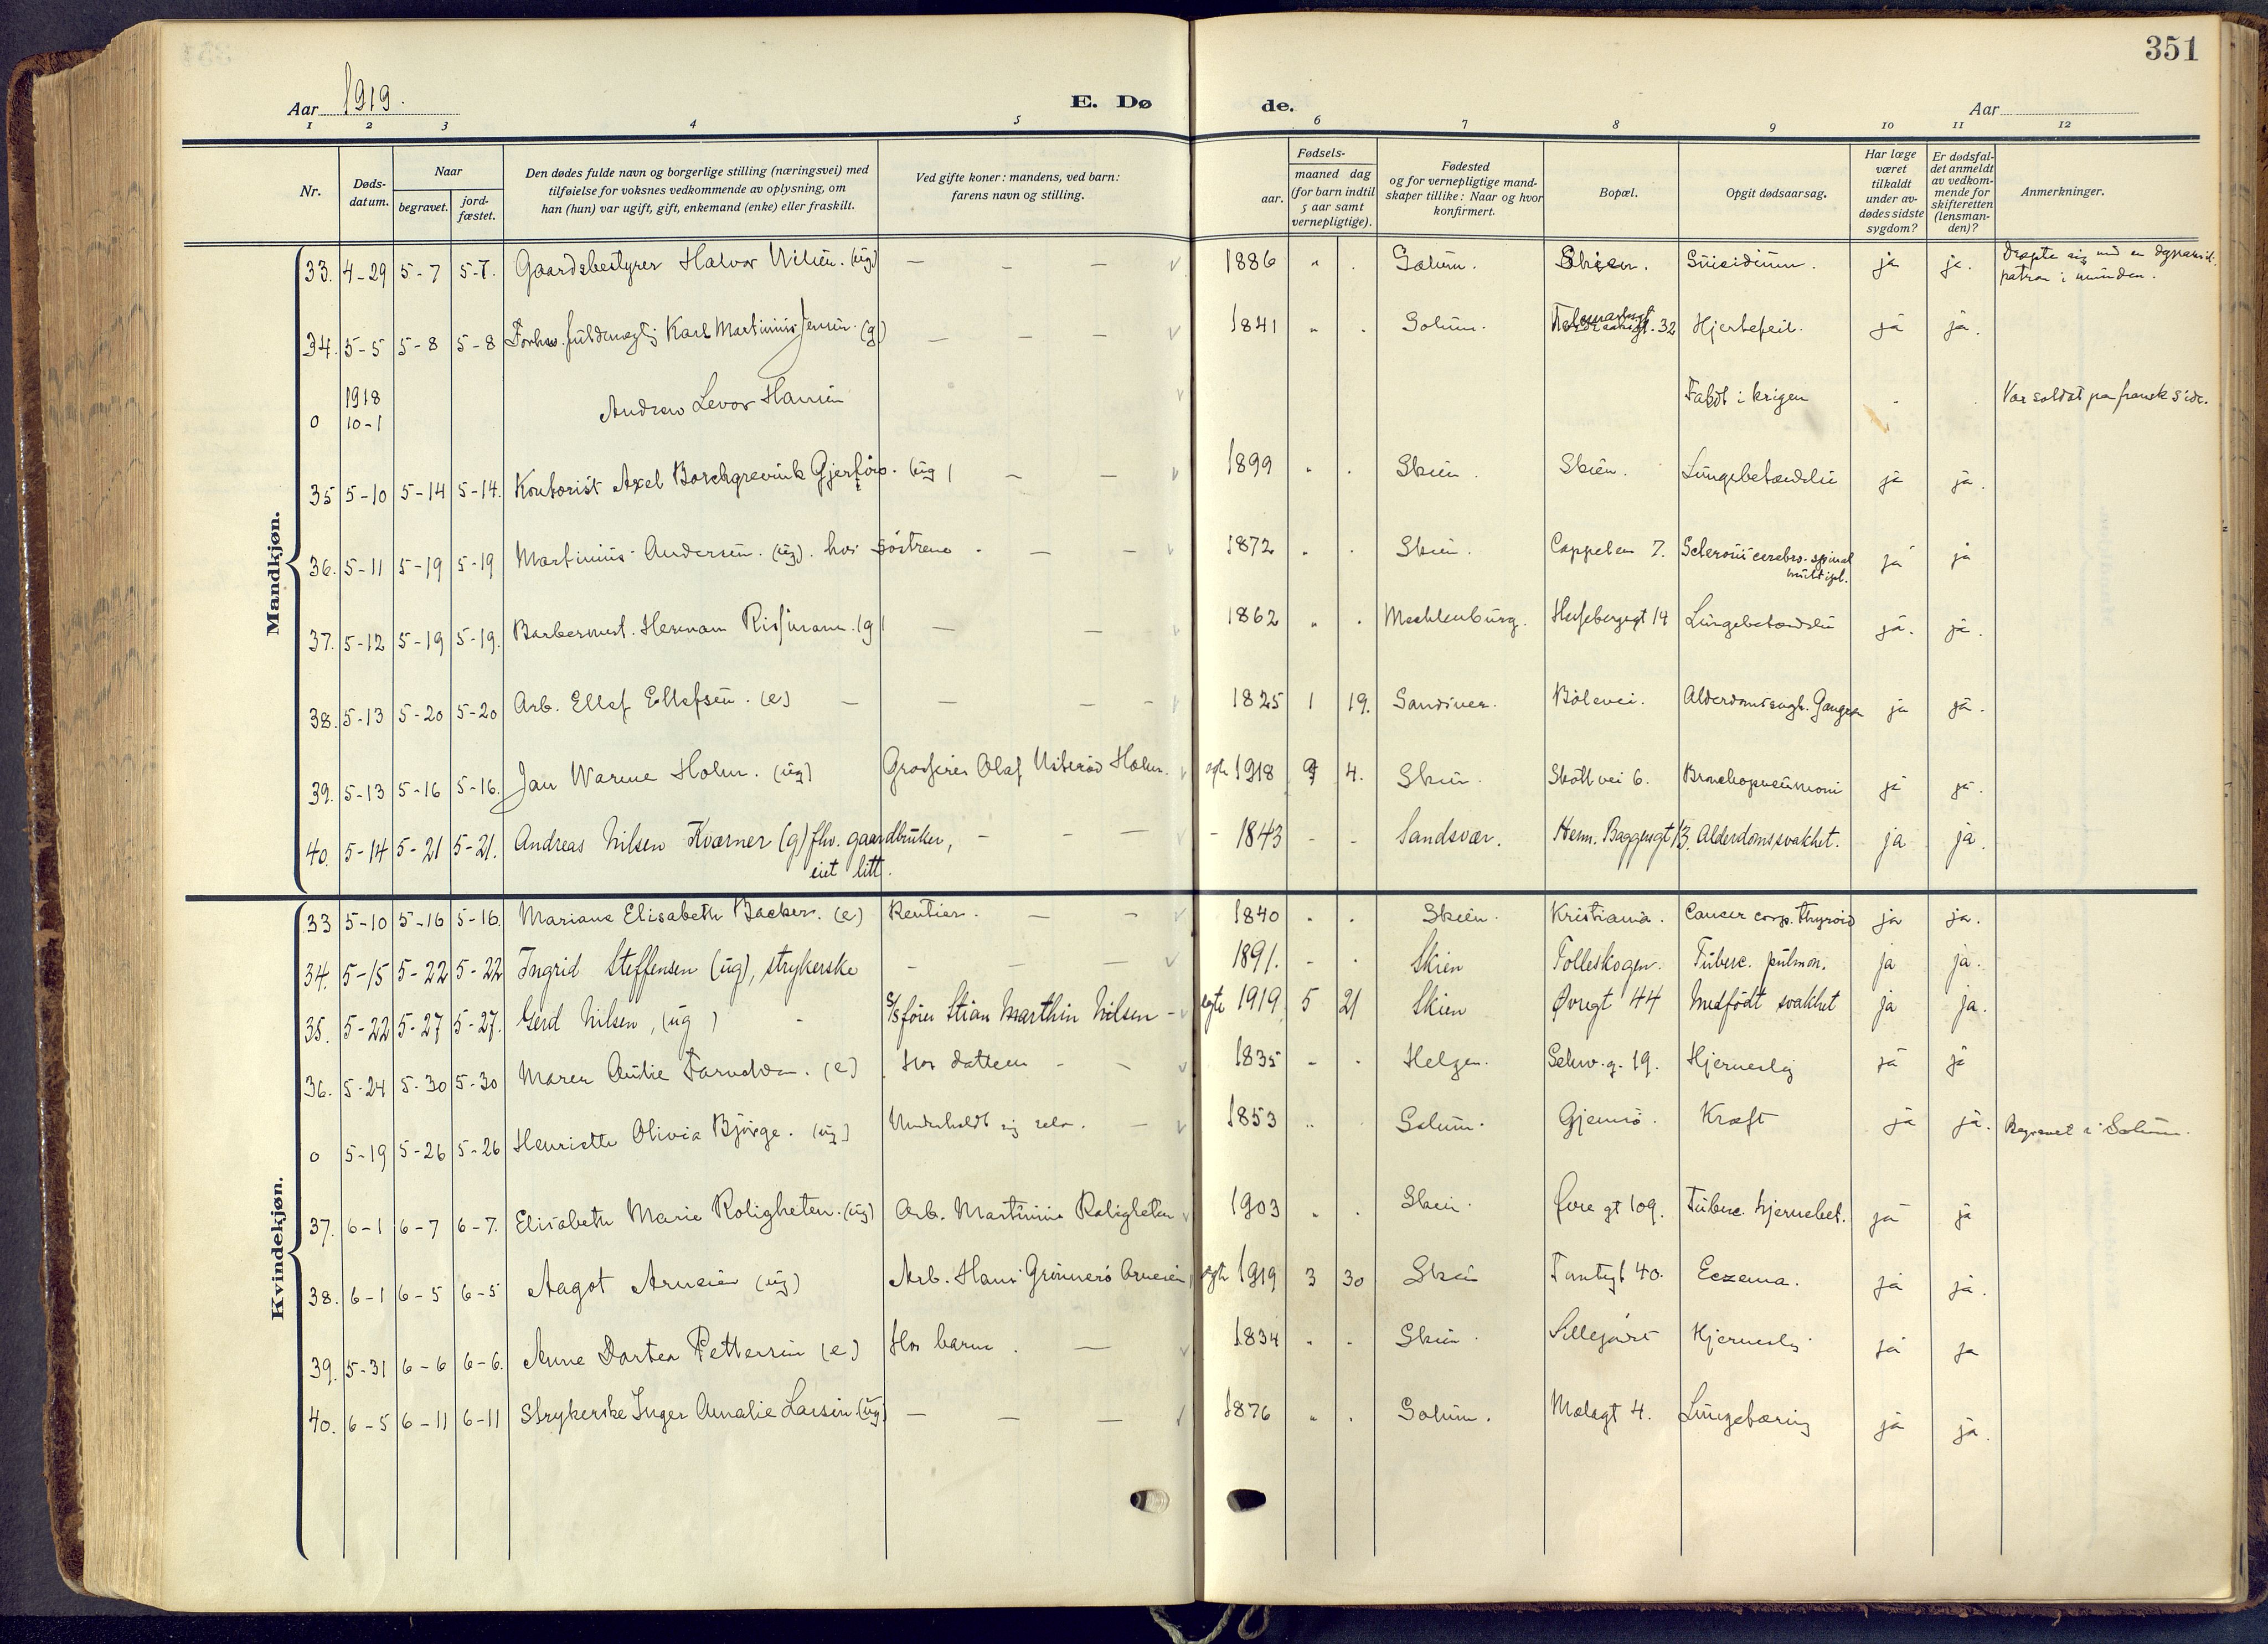 351
Aar 1919.
E. Dø de.
Aar
1 2 3 4 5 6 7 8 9 10 11 12
Nr.
Døds-
datum.
Naar
begravet.
jord-
fæstet.
Den dødes fulde navn og borgerlige stilling (næringsvei) med
tilføielse for voksnes vedkommende av oplysning, om
han (hun) var ugift, gift, enkemand (enke) eller fraskilt.
Ved gifte koner: mandens, ved barn:
farens navn og stilling.
Fødsels-
aar.
maaned dag
(for barn indtil
5 aar samt
vernepligtige).
Fødested
og for vernepligtige mand-
skaper tillike: Naar og hvor
konfirmert.
Bopæl.
Opgit dødsaarsag.
Har læge
været
tilkaldt
under av-
dødes sidste
sygdom?
Er dødsfal-
det anmeldt
av vedkom-
mende for
skifteretten
(lensman-
den)?
Anmerkninger.
Mandkjøn.
33. 4-29 5-7 5-7. Gaardsbestyrer Halvor (ug) — — — 1886 " . Solum. Skien. Suicidium. ja ja. Dræpte sig med en dynamit-
patron i munden.
34. 5-5 5-8 5-8 fuldmægtig Karl Martinius Jensen. (g) — — — 1841 " . Solum. 32 Hjertefeil. ja ja.
0 1918
10-1 Andrew Levor Hansen Faldt i krigen Var soldat paa fransk side.
35 5-10 5-14 5-14. Kontorist Axel Borchgrevink (ug) — — 1899 " . Skien. Skien. Lungebetændelse ja ja.
36. 5-11 5-19 5-19 Martinius Andersen. (ug). hos søstrene — — 1872 " . Skien. Cappelen 7. cerebro-spinal
multipl. ja ja
37. 5-12 5-19 5-19. Herman (g) — — 1862 " . Mecklenburg. 14 Lungebetændelse ja. ja.
38. 5-13 5-20 5-20 Arb. Ellef Ellefsen. (e) — — — — 1825 1 19. Sandsver. Bölevei. Gangræn ja ja.
39. 5-13 5-16 5-16. Jan Warme Holm. (ug) Grosserer Olaf Holm. egte 1918 9 4. Skien. Skottvei 6. Bronchopneumoni ja ja.
40. 5-14 5-21 5-21. Andreas Nilsen Kværner (g) fhv. gaardbruker,
eiet litt. — — — 1843 - - Sandsvær. Herm. Baggesgt 13. Alderdomssvakhet. ja ja.
Kvindekjøn.
33 5-10 5-16 5-16. Mariane Elisabeth Backer. (e) Rentier. — — 1840 " . Skien. Kristiania. Cancer corp. thyroid ja ja.
34. 5-15 5-22 5-22 Ingrid Steffensen (ug), strykerske - — — 1891. - . Skien Folleskogen. Tuberc. pulmon. ja ja.
35. 5-22 5-27 5-27. Gerd Nilsen, (ug) - S/S fører Stian Marthin Nilsen - egte 1919 5 21 Skien Øvregt 44 Medfödt svakhet ja ja.
36. 5-24 5-30 5-30 Maren (e) Hos datteren - - 1835 - . Helgen. 19. Hjerneslag ja ja
0 5-19 5-26 5-26 Henriette Olivia Bjørge. (ug) Underholdt sig selv. — 1853 " Solum. Gjemsö. Kræft ja ja. Begravet i Solum.
37. 6-1 6-7 6-7. Elisabeth Marie Roligheten. (ug) Arb. Martinius Roligheten 1903 " . Skien. Øvre gt 109. Tuberc. hjernebet. ja ja
38. 6-1 6-5 6-5 Aagot Arnesen (ug) Arb. Hans Arnesen egte 1919 3 30 Skien 40. Eczema. ja ja.
39. 5-31 6-6 6-6. Anne Dortea Pettersen (e) Hos barn. — 1834 " - Skien. Hjerneslag ja ja
40. 6-5 6-11 6-11 Strykerske Inger Amalie Larsen (ug) — — — 1876 " . Solum. Mælagt 4. Lungetæring ja ja.